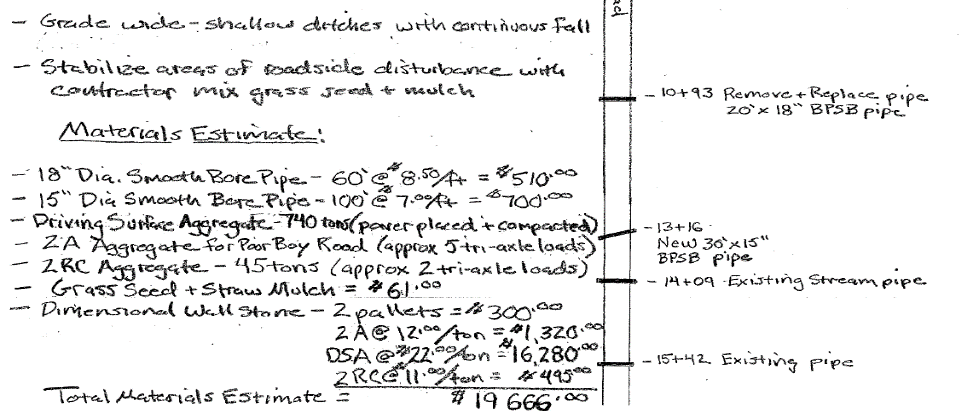 - Grade wide-shallow ditches with continuous fall
- Stabilize areas of roadside disturbance with
contractor mix grass seed + mulch
Materials Estimate:
- 18" Dia. Smooth Bore Pipe - 60' @ $8.50/ft = $510.00
- 15" Dia Smooth Bore Pipe - 100' @ $7.00/ft = $700.00
- Driving Surface Aggregate - 740 tons (paver placed + compacted)
- 2A Aggregate for Poor Boy Road (approx 5 tri-axle loads)
- 2RC Aggregate - 45 tons (approx 2 tri-axle loads)
- Grass Seed + Straw Mulch = $61.00
- Dimensional Wall Stone - 2 pallets = $300.00
2A @ 12.00/ton = $1,320.00
DSA @ $22.00/ton = $16,280.00
2RC @ $11.00/ton = $495.00
Total Materials Estimate = $19666.00
- 10+93 Remove + Replace pipe
20' x 18" BPSB pipe
- 13+16
New 30' x 15"
BPSB pipe
- 14+09 Existing Stream pipe
- 15+42 Existing pipe